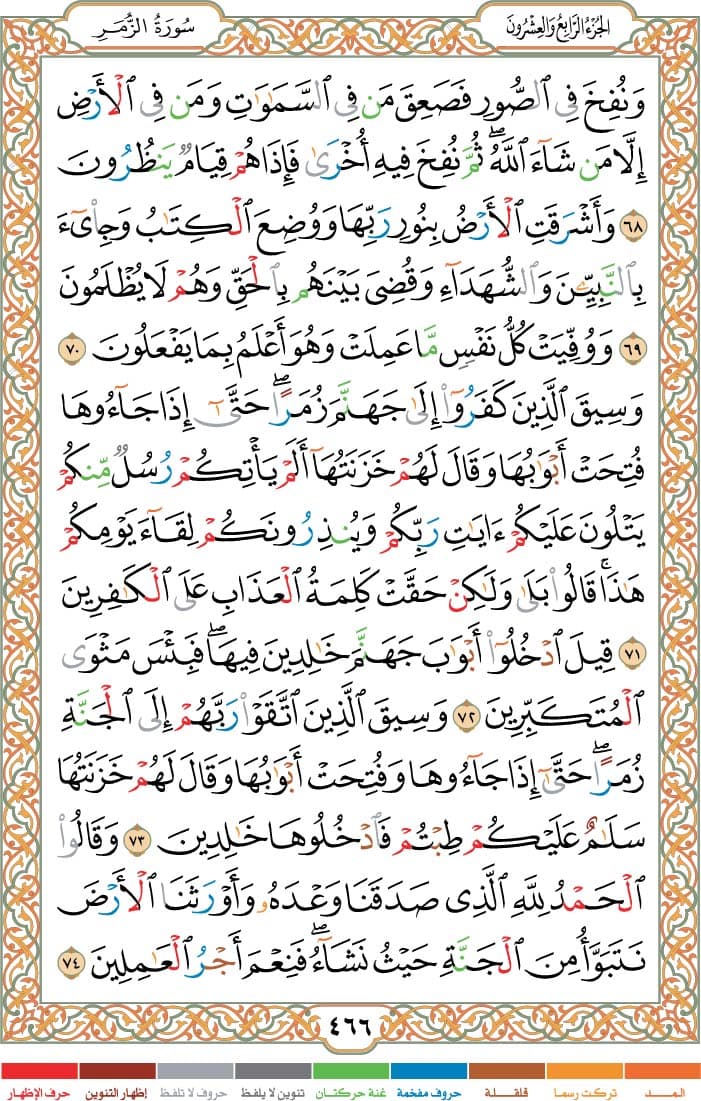 الجزء الرابع والعشرون
سورة الزمر
وَنُفِخَ فِي ٱلصُّورِ فَصَعِقَ مَن فِي ٱلسَّمَٰوَٰتِ وَمَن فِي ٱلْأَرْضِ
إِلَّا مَن شَآءَ ٱللَّهُ ۖ ثُمَّ نُفِخَ فِيهِ أُخْرَىٰ فَإِذَا هُمْ قِيَامٌ يَنظُرُونَ
٦٨ وَأَشْرَقَتِ ٱلْأَرْضُ بِنُورِ رَبِّهَا وَوُضِعَ ٱلْكِتَٰبُ وَجِا۟ىٓءَ
بِٱلنَّبِيِّـۧنَ وَٱلشُّهَدَآءِ وَقُضِيَ بَيْنَهُم بِٱلْحَقِّ وَهُمْ لَا يُظْلَمُونَ
٦٩ وَوُفِّيَتْ كُلُّ نَفْسٍ مَّا عَمِلَتْ وَهُوَ أَعْلَمُ بِمَا يَفْعَلُونَ ٧٠
وَسِيقَ ٱلَّذِينَ كَفَرُوٓا۟ إِلَىٰ جَهَنَّمَ زُمَرًا ۖ حَتَّىٰٓ إِذَا جَآءُوهَا
فُتِحَتْ أَبْوَٰبُهَا وَقَالَ لَهُمْ خَزَنَتُهَآ أَلَمْ يَأْتِكُمْ رُسُلٌ مِّنكُمْ
يَتْلُونَ عَلَيْكُمْ ءَايَٰتِ رَبِّكُمْ وَيُنذِرُونَكُمْ لِقَآءَ يَوْمِكُمْ
هَٰذَا ۚ قَالُوا۟ بَلَىٰ وَلَٰكِنْ حَقَّتْ كَلِمَةُ ٱلْعَذَابِ عَلَى ٱلْكَٰفِرِينَ
٧١ قِيلَ ٱدْخُلُوٓا۟ أَبْوَٰبَ جَهَنَّمَ خَٰلِدِينَ فِيهَا ۖ فَبِئْسَ مَثْوَى
ٱلْمُتَكَبِّرِينَ ٧٢ وَسِيقَ ٱلَّذِينَ ٱتَّقَوْا۟ رَبَّهُمْ إِلَى ٱلْجَنَّةِ
زُمَرًا ۖ حَتَّىٰٓ إِذَا جَآءُوهَا وَفُتِحَتْ أَبْوَٰبُهَا وَقَالَ لَهُمْ خَزَنَتُهَا
سَلَٰمٌ عَلَيْكُمْ طِبْتُمْ فَٱدْخُلُوهَا خَٰلِدِينَ ٧٣ وَقَالُوا۟
ٱلْحَمْدُ لِلَّهِ ٱلَّذِي صَدَقَنَا وَعْدَهُۥ وَأَوْرَثَنَا ٱلْأَرْضَ
نَتَبَوَّأُ مِنَ ٱلْجَنَّةِ حَيْثُ نَشَآءُ ۖ فَنِعْمَ أَجْرُ ٱلْعَٰمِلِينَ ٧٤
٤٦٦
المـــد تركت رسما قلقـــلة حروف مفخمة غنة حركتان تنوين لا يلفظ حروف لا تلفظ إظهار التنوين حرف الإظهار